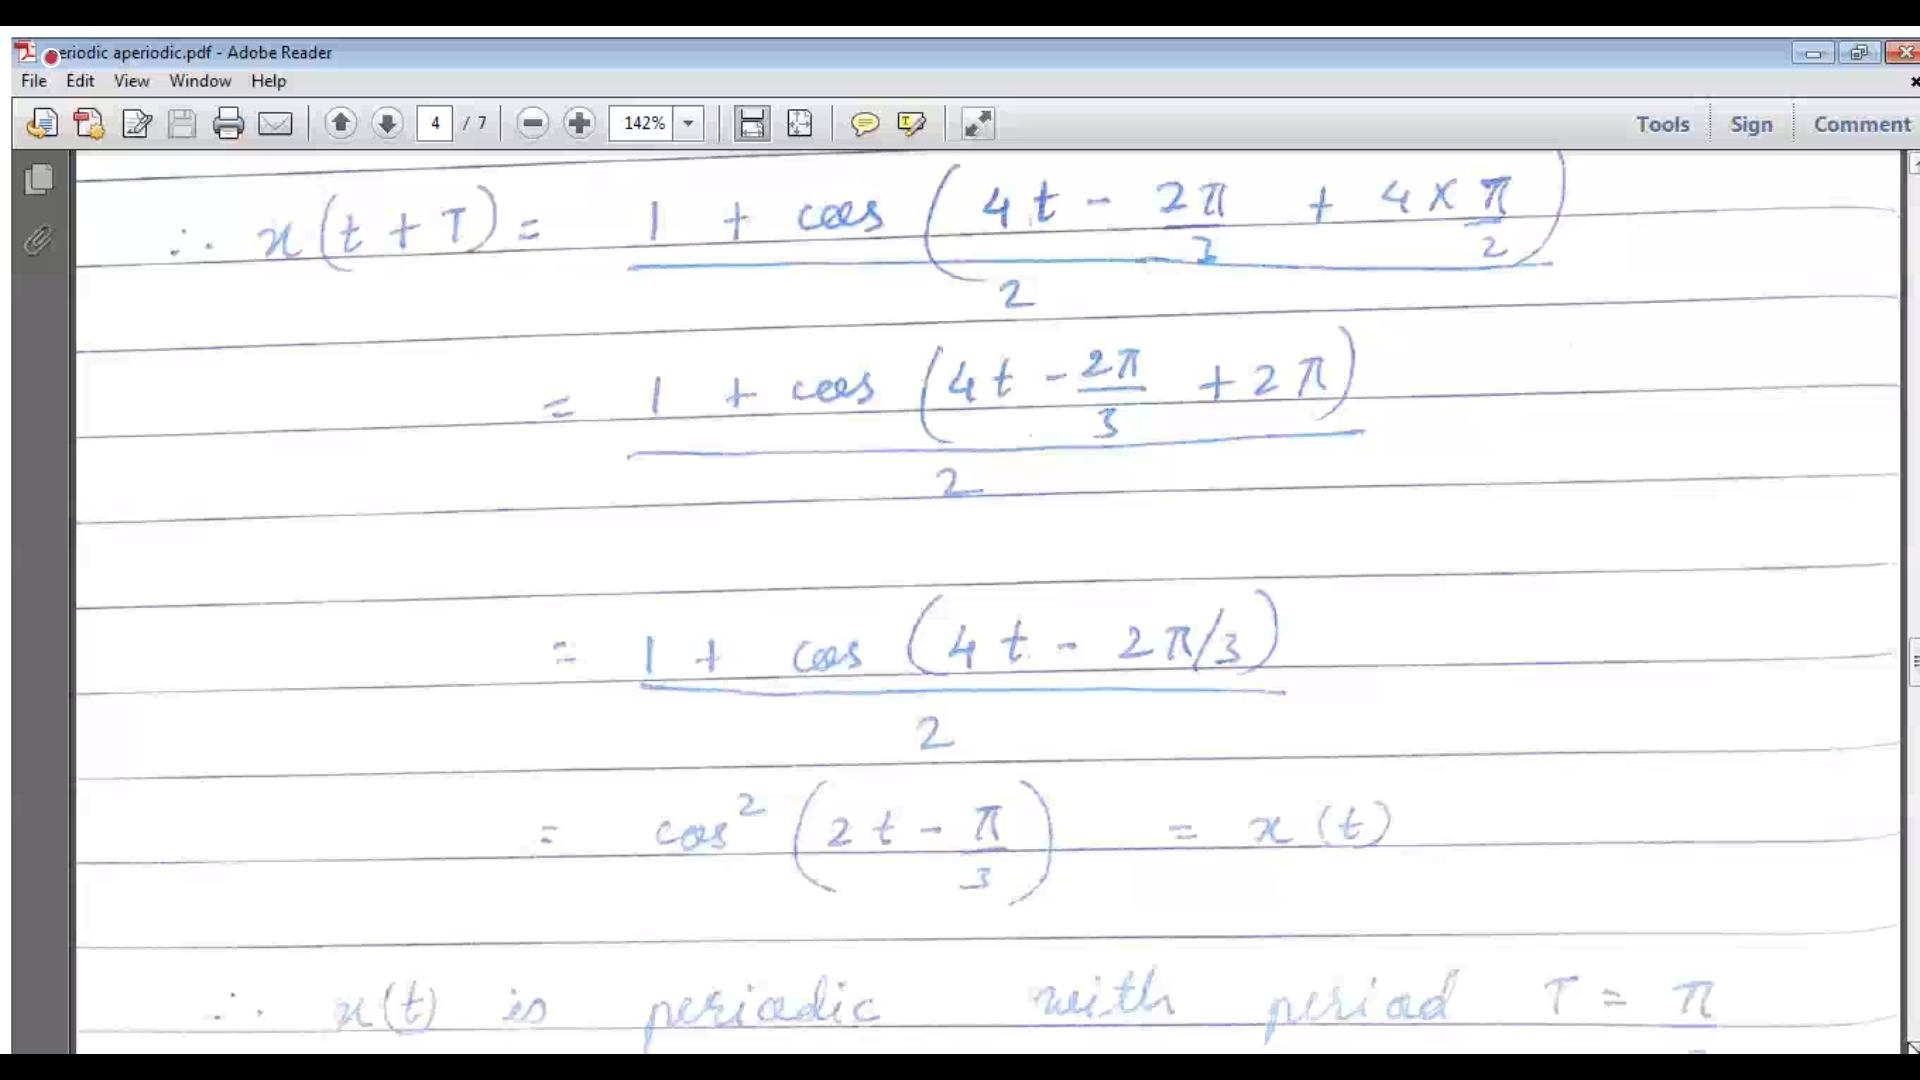 eriodic aperiodic.pdf - Adobe Reader
File Edit View Window Help
4 / 7 142% Tools Sign Comment
∴ x(t + T) = (1 + cos(4t - 2π/3 + 4 × π/2))/2
= (1 + cos(4t - 2π/3 + 2π))/2
= (1 + cos(4t - 2π/3))/2
= cos²(2t - π/3) = x(t)
∴ x(t) is periodic with period T = π